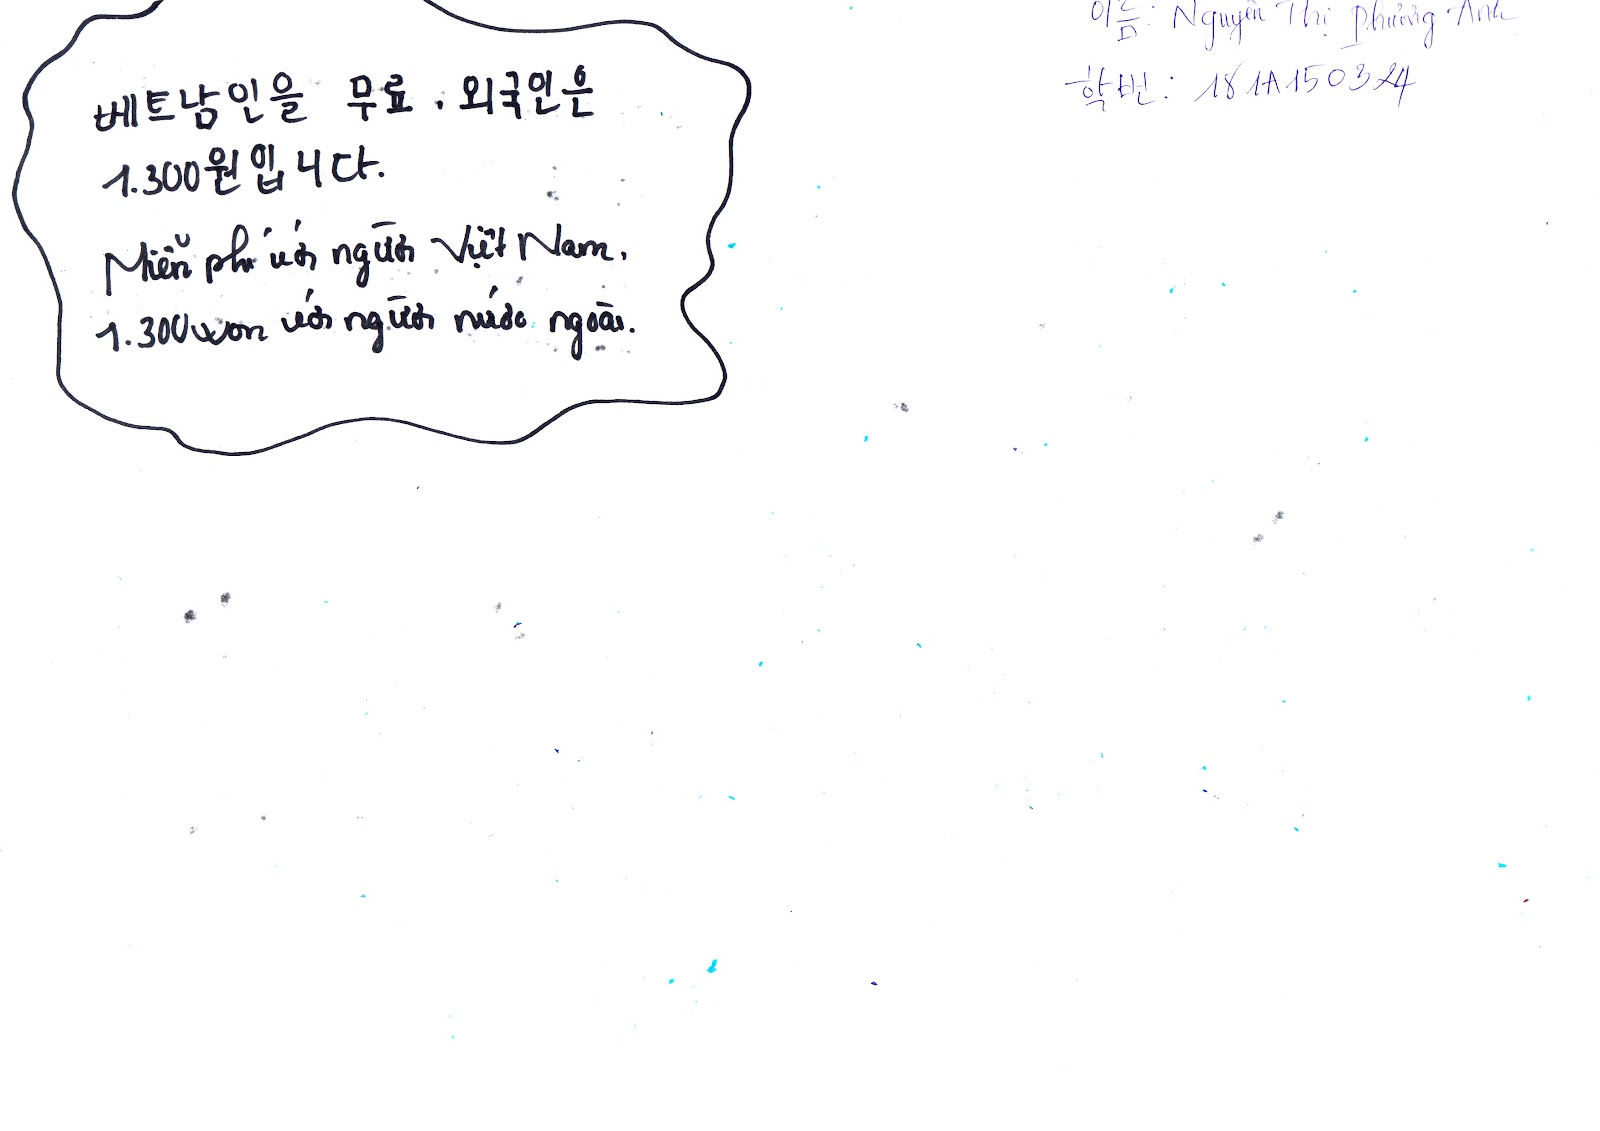 베트남인을 무료. 외국인은
1.300원입니다.
Miễn phí với người Việt Nam,
1.300won với người nước ngoài.
이름: Nguyễn Thị Phương Anh
학번: 181A150324